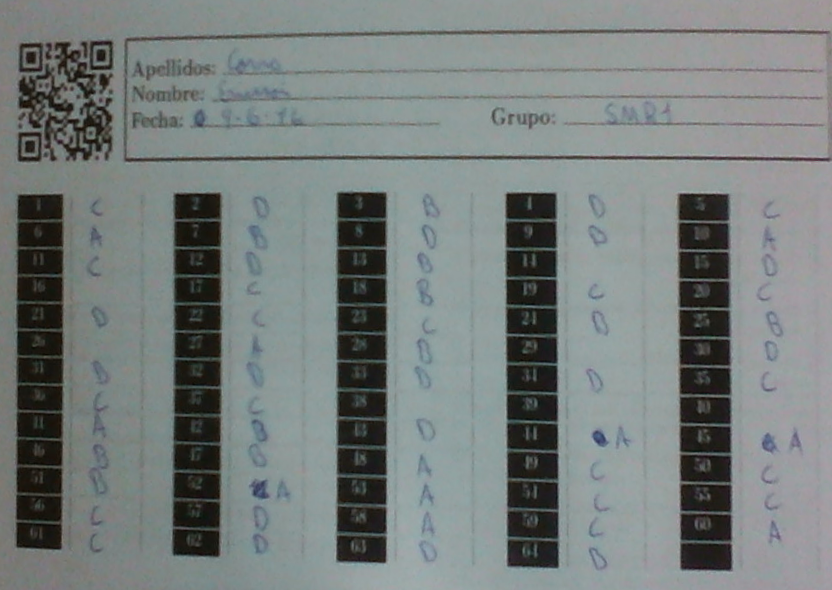 Apellidos:
Nombre:
Fecha: 9-6-16 Grupo: SMR1
1 C 2 D 3 B 4 D 5 C
6 A 7 B 8 D 9 D 10 A
11 C 12 D 13 D 14 15 D
16 17 C 18 B 19 C 20 C
21 D 22 C 23 C 24 D 25 B
26 27 A 28 B 29 30 D
31 D 32 D 33 D 34 D 35 C
36 C 37 C 38 39 40
41 A 42 B 43 D 44 A 45 A
46 B 47 D 48 A 49 C 50 C
51 D 52 A 53 A 54 C 55 C
56 C 57 D 58 A 59 C 60 A
61 C 62 D 63 D 64 D